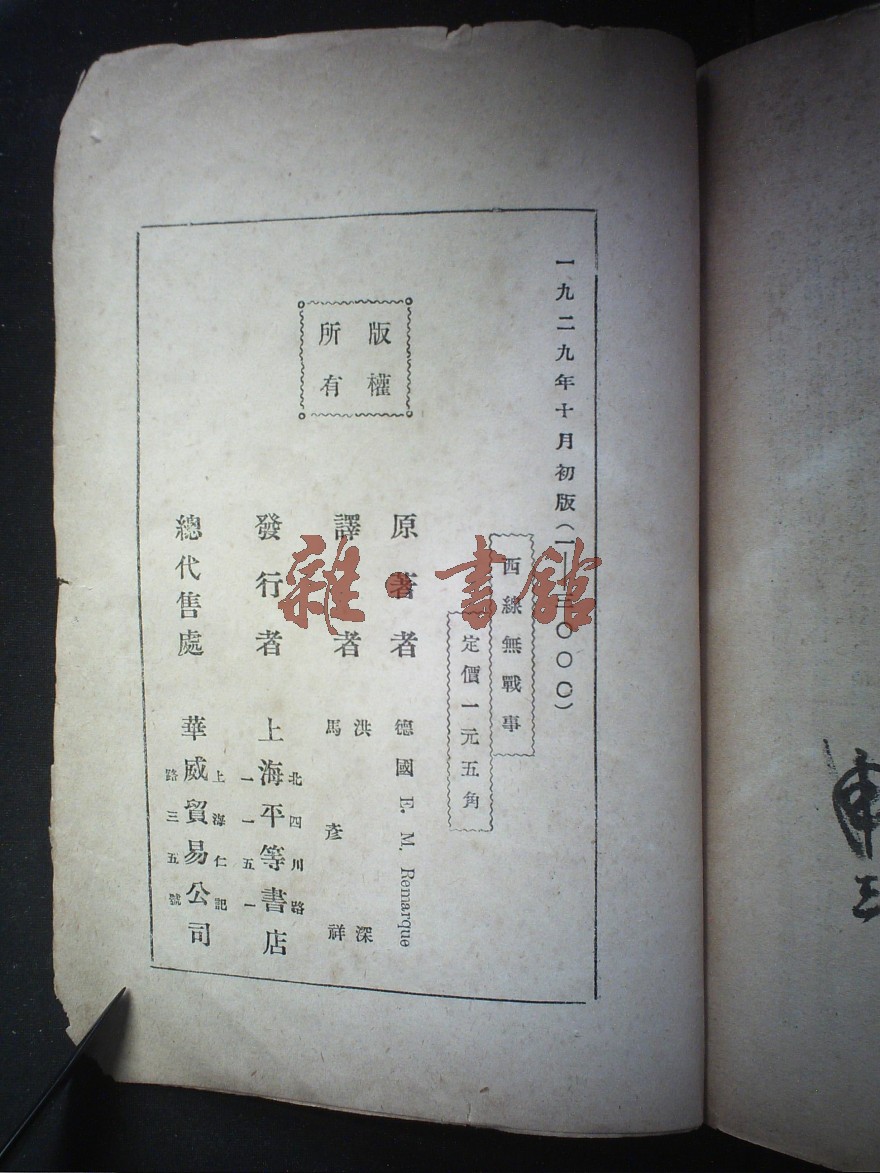 一九二九年十月初版(一—三〇〇〇)
西線無戰事
定價一元五角
版權
所有
原著者 德國 E. M. Remarque
譯者 洪深
馬彥祥
發行者 上海平等書店
北四川路
一一五一
總代售處 華威貿易公司
上海仁記
路三五號
雜·書館